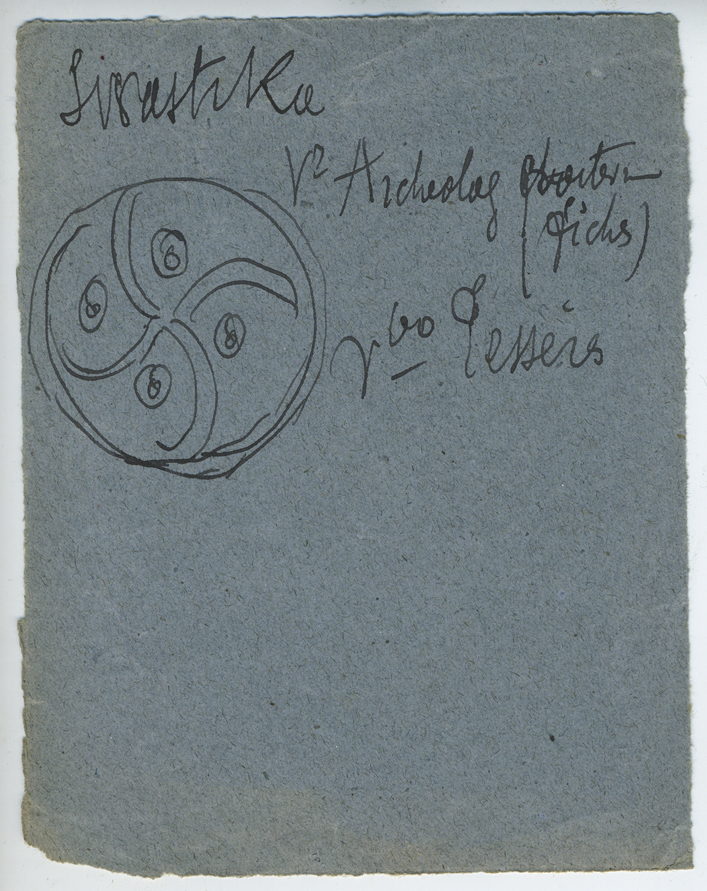 Swastika
Vr Archeolog
fichs)
vbo Tessères